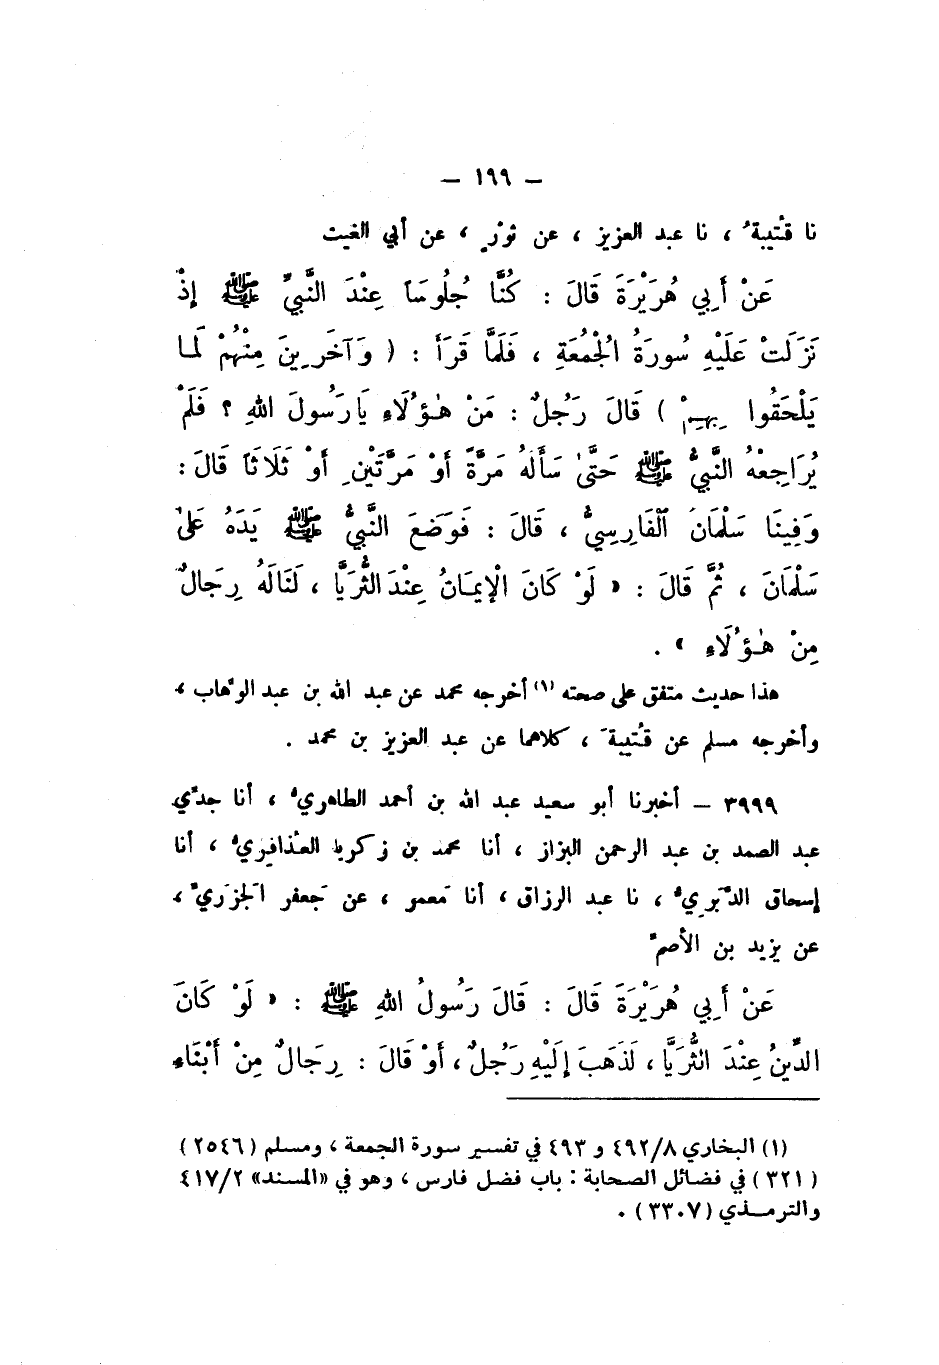 – ١٩٩ –
نا قتيبةُ ، نا عبد العزيز ، عن ثورٍ ، عن أبي الغيث
عَنْ أَبِي هُرَيْرَةَ قَالَ : كُنَّا جُلُوسًا عِنْدَ النَّبِيِّ ﷺ إِذْ
نَزَلَتْ عَلَيْهِ سُورَةُ الْجُمُعَةِ ، فَلَمَّا قَرَأَ : ( وَآخَرِينَ مِنْهُمْ لَمَّا
يَلْحَقُوا بِهِمْ ) قَالَ رَجُلٌ : مَنْ هٰؤُلَاءِ يَا رَسُولَ اللهِ ؟ فَلَمْ
يُرَاجِعْهُ النَّبِيُّ ﷺ حَتَّىٰ سَأَلَهُ مَرَّةً أَوْ مَرَّتَيْنِ أَوْ ثَلَاثًا قَالَ :
وَفِينَا سَلْمَانُ الْفَارِسِيُّ ، قَالَ : فَوَضَعَ النَّبِيُّ ﷺ يَدَهُ عَلَىٰ
سَلْمَانَ ، ثُمَّ قَالَ : « لَوْ كَانَ الْإِيمَانُ عِنْدَ الثُّرَيَّا ، لَنَالَهُ رِجَالٌ
مِنْ هٰؤُلَاءِ » .
هذا حديث متفق على صحته (١) أخرجه محمد عن عبد الله بن عبد الوهّاب ،
وأخرجه مسلم عن قُتيبةَ ، كلاهما عن عبد العزيز بن محمد .
٣٩٩٩ – أخبرنا أبو سعيد عبد الله بن أحمد الطاهريُّ ، أنا جدّي
عبد الصمد بن عبد الرحمن البزاز ، أنا محمد بن زكريا العُذافِريُّ ، أنا
إسحاق الدَّبَرِيُّ ، نا عبد الرزاق ، أنا مَعمر ، عن جَعفر الجَزَريِّ ،
عن يزيد بن الأصمِّ
عَنْ أَبِي هُرَيْرَةَ قَالَ : قَالَ رَسُولُ اللهِ ﷺ : « لَوْ كَانَ
الدِّينُ عِنْدَ الثُّرَيَّا ، لَذَهَبَ إِلَيْهِ رَجُلٌ ، أَوْ قَالَ : رِجَالٌ مِنْ أَبْنَاءِ
(١) البخاري ٤٩٢/٨ و ٤٩٣ في تفسير سورة الجمعة ، ومسلم (٢٥٤٦)
(٣٢١) في فضائل الصحابة : باب فضل فارس ، وهو في «المسند» ٤١٧/٢
والترمذي (٣٣٠٧) .